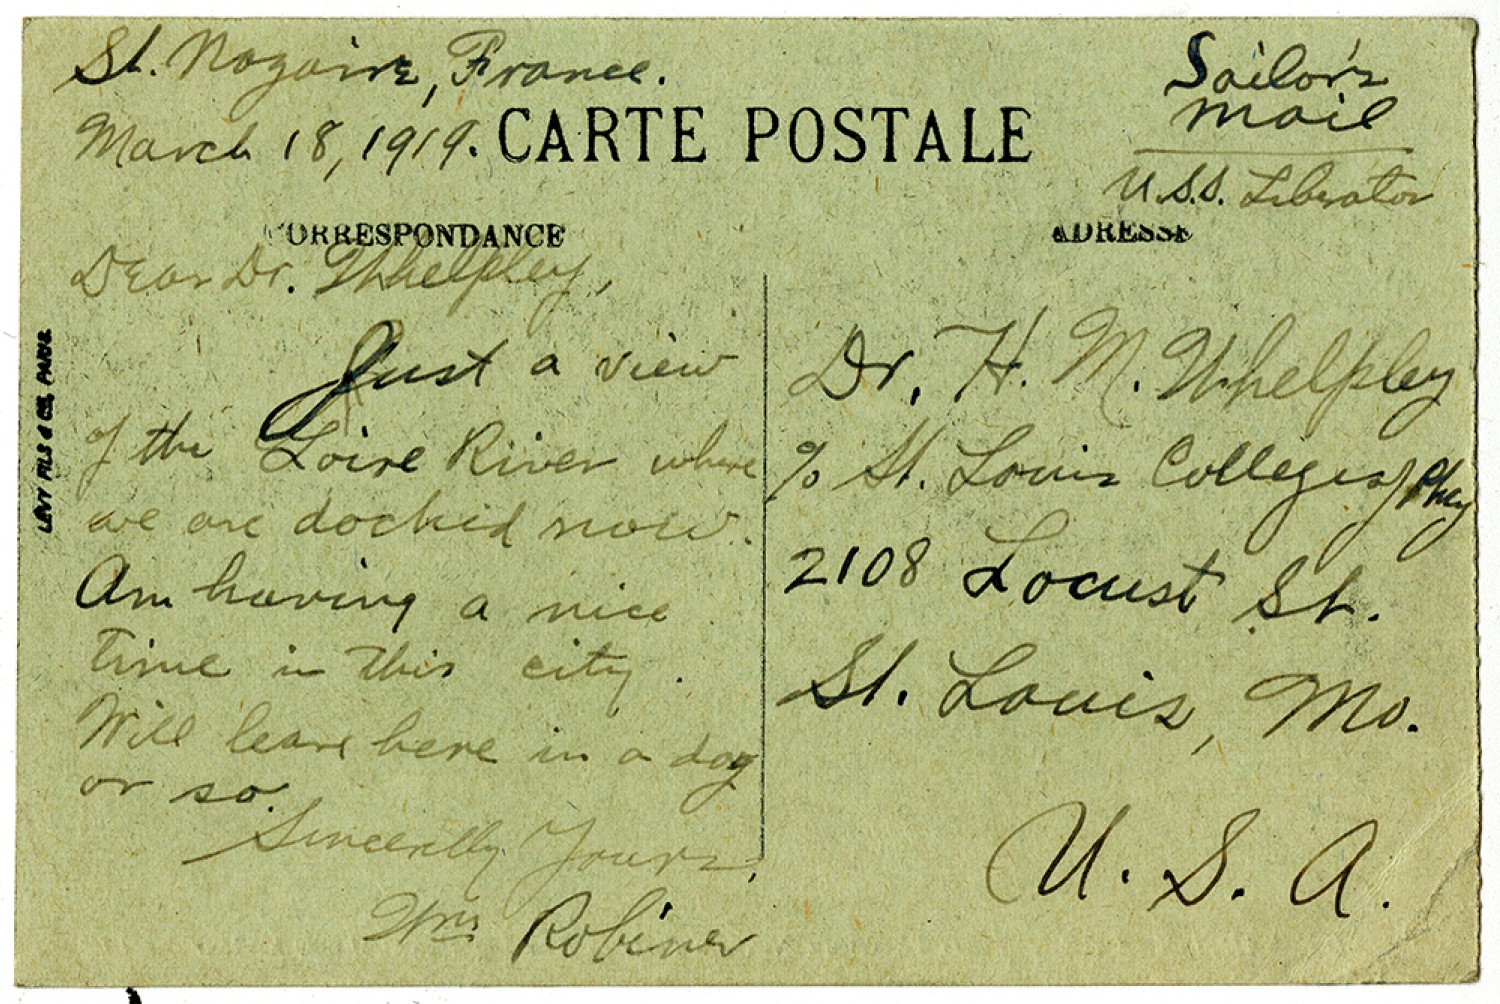 St. Nazaire, France.
March 18, 1919.
CARTE POSTALE
Sailor's
Mail
U.S.S. Liberator
CORRESPONDANCE
ADRESSE
Dear Dr. Whelpley,
Just a view
of the Loire River where
we are docked now.
Am having a nice
time in this city.
Will leave here in a day
or so.
Sincerelly Yours,
Wm Robiner
Dr. H. M. Whelpley
% St. Louis College of Phcy
2108 Locust St.
St. Louis, Mo.
U. S. A.
LEVY FILS & CIE, PARIS